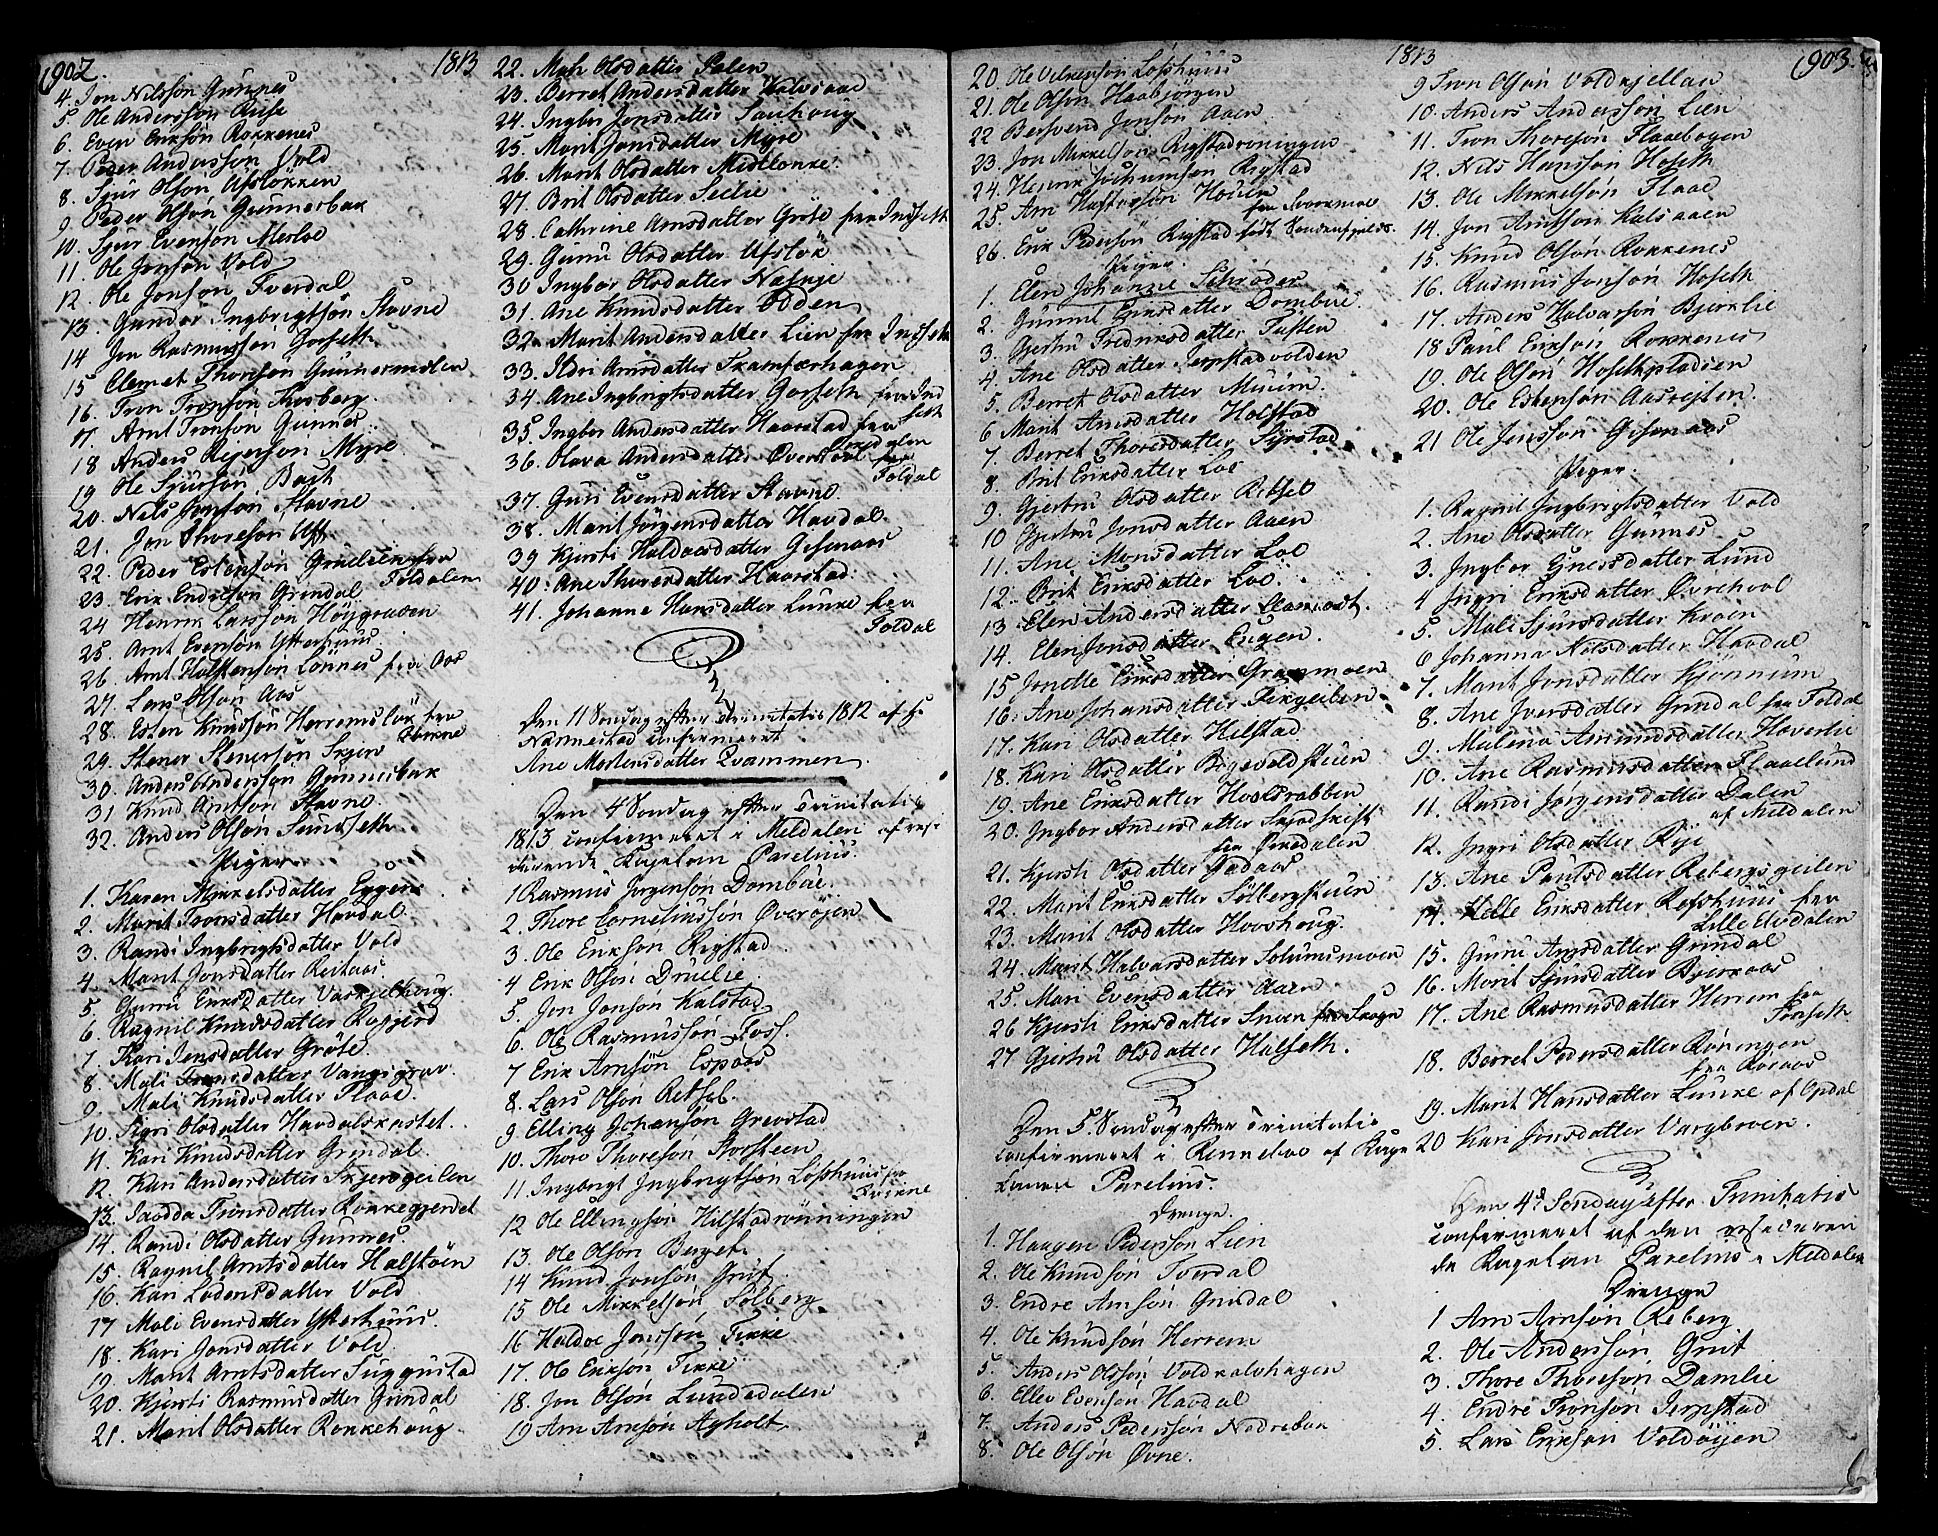 1902.
1813
4. Jon Nilssön Gunnes
5 Ole Anderssön Reise
6. Even Eriksön Rokkenes
7. Peder Anderssön Vold
8. Sjur Olsön Ufslökken
9. Peder Olsön Gunnesbak
10. Sjur Evensön Mersloe
11. Ole Jonsön Vold
12. Ole Jonsön Tverdal
13 Gundor Ingbrigtsön Stavne
14 Jon Rasmussön Gorseth
15 Clemet Thoresön Gunnesmelen
16. Tron Tronsön Skarberg
17. Arnt Tronsön Gunnes
18 Anders Rejersön Myre
19 Ole Sjursön Bach
20. Nils Jonsön Stavne
21. Jon Thoresön Uf
22. Peder Estensön Grutlien fra
Foldalen
23. Erik Endresön Grindal
24 Henrik Larssön Höygraven
25 Arnt Evensön Ytterhuus
26. Arnt Halstensön Lönnes fra Aas
27. Lars Olsön Aas
28. Esten Knudsön Herremslök fra
Qvikne
29. Stener Stenersön Skjer
30. Anders Anderssön Gunnesbak
31 Knud Arntsön Stavne
32. Anders Olsön Sundseth
Piger
1. Karen Mikkelsdatter Eggen
2. Marit Tronsdatter Havdal
3. Randi Ingbrigtsdatter Vold
4 Marit Jonsdatter Reitaas
5. Gurru Eriksdatter Vaskjelhoug
6. Ragnil Knudsdatter Rafjerd
7. Kari Jensdatter Gröte
8 Mali Tronsdatter Vangsgrav.
9. Mali Knudsdatter Flaae
10. Sigri Olsdatter Havdalskastet
11. Kari Knudsdatter Grindal
12. Kari Andersdatter Skjersgeilen
13. Fredda Tronsdatter Rokkegjerdet
14. Randi Olsdatter Gunnes
15 Ragnil Arntsdatter Halstöen
16. Kari Lodensdatter Vold
17 Mali Evensdatter Ytterhuus.
18. Kari Jonsdatter Vold
19. Marit Arntsdatter Fuggustad
20. Kjersti Rasmusdatter Grindal
21. Marit Olsdatter Rokkehoug
22. Marit Olsdatter Dalen
23. Berret Andersdatter Kalvsaae
24. Ingbor Jonsdatter Sauhoug
25. Marit Jonsdatter Myre
26. Marit Olsdatter Midtlökke
27. Brit Olsdatter Seelie
28. Cathrine Arnsdatter Gröte fra Indseth
29. Guru Olsdatter Ufslök
30 Ingbor Olsdatter Næsgje
31. Ane Knudsdatter Odden
32. Marit Andersdatter Lien fra Indseth
33. Ildri Arnsdatter Skamfærhagen
34. Ane Ingbrigtsdatter Gorseth fra Ind
seth
35. Ingbor Andersdatter Haarstad fra
Orkedalen
36. Olava Andersdatter Overhoel fra
Foldal
37. Guri Evensdatter Stavne
38. Marit Jörgensdatter Havdal
39 Kjersti Haldorsdatter Gisenaas
40. Ane Thoresdatter Haarstad
41. Johanna Hansdatter Lunke fra
Foldal
Den 11 Söndag efter Trinitatis 1812 af H.
Normestad confirmeret
Ane Mortensdatter Qvammen
Den 4 Söndag efter Trinitatis
1813 confirmeret i Meldalen af resi
derende Kapelan Parelius.
1 Rasmus Jorgensön Dombue.
2. Thore Corneliussön Överöjen
3. Ole Erikson Rigstad
4 Erik Olson Druelie
5. Jon Jonson Kalstad
6. Ole Rasmussön Foss
7 Erik Arnsön Espaas
8. Lars Olsön Retseb.
9. Elling Johansön Grevstad
10. Thore Thoresön Storsteen
11 Ingbrigt Ingbrigtsön Losshuus fra
Qvikne
12 Ole Ellingsön Hilstadrönningen
13. Ole Olsön Berget
14 Knud Jonsön Grut
15 Ole Mikkelsön Solberg
16 Haldor Jonssön Fikke
17. Ole Eriksön Fikke
18. Jon Olsön Lundedalen
19 Arn Arnsön Agholt
1813
1903.
20. Ole Velkensön Losshuus
21. Ole Olsön Haabjörgen
22 Besvend Jonsön Aaen
23. Jon Mikkelsön Rigstadroningen
24. Henrik Jochumsön Rigstad
25. Arn Hustesön Houen
fra Svorkmoe
26. Erik Pedersön Rigstad födt Söndenfields.
Piger.
1. Elen Johanne Schröder
2. Gunnil Eriksdatter Dombue
3. Gjertru Fredriksdatter Tuften
4. Ane Olsdatter Jerpstadvolden
5. Berret Olsdatter Murim.
6 Marit Arnsdatter Holstad
7. Berret Thoresdatter Syrstad
8. Brit Eriksdatter Loe
9. Gjertru Olsdatter Retseb
10 Gjertru Jonsdatter Aaen
11. Ane Monsdatter Loe
12. Brit Eriksdatter Loe.
13 Elen Andersdatter
14. Elen Jonsdatter Eugen.
15 Jonette Eriksdatter Granmoen
16. Ane Johansdatter Fikgeilen
17. Kari Olsdatter Hilstad
18. Kari Olsdatter Bergsvoldsteien
19. Ane Eriksdatter Hoelsrabben
20. Ingbor Andersdatter Skjodskift
fra Orkedalen
21. Kjersti Olsdatter Gadaas
22. Marit Eriksdatter Sölbergsteien
23. Marit Olsdatter Hovshoug.
24. Marit Halvorsdatter Solumsmoen
25. Mari Evensdatter Aaen
26 Kjersti Eriksdatter Snoen fra Skogn
27 Gjertru Olsdatter Halseth.
Den 5. Söndag efter Trinitatis
confirmeret i Renneboe af Kape
lanen Parelius.
Drenge.
1. Haagen Pedersön Lien
2. Ole Knudsön Tverdal
3. Endre Arnsön Grindal
4. Ole Knudsön Herrem
5. Anders Olssön Voldkalvhagen
6. Ellev Evensön Havdal
7. Anders Pedersön Nedrebak
8. Ole Olsön Övne.
9 Tron Olsön Voldkjellan
10. Anders Andersson Lien
11. Tron Thoresön Flaabogen
12. Nils Hanssön Hoseth
13. Ole Mikkelsön Flaae
14. Jon Arntsön Kalsaaen
15. Knud Olsön Rokkenes
16. Rasmus Jonsön Hoseth
17. Anders Halvorsön Bjerklie
18 Paul Eriksön Rokkenes
19. Ole Olsön Hosethpladsen
20. Ole Estensön Aasvesten
21 Ole Jenssön Gisenaas
Piger.
1. Ragnil Ingbrigtsdatter Vold
2. Ane Olsdatter Gunnes
3. Ingbor Gunnersdatter Lund
4 Ingri Eriksdatter Overhoel
5. Mali Sjursdatter Kroen
6 Johanna Nilsdatter Havdal
7. Marit Jonsdatter Kjönnum
8. Ane Iversdatter Grindal fra Foldal
9. Malena Amundsdatter Haverlie
10. Ane Rasmusdatter Flaaelund
11. Randi Jörgensdatter Dalen
af Meldalen
12. Ingri Olsdatter Rise
13. Ane Paulsdatter Rebergsgeilen
14. Lille Eriksdatter Refshuus fra
Lille Elvdalen
15. Gurru Arnsdatter Grindal
16. Marit Sjursdatter Bjerkaas
17. Ane Rasmusdatter Herrem fra
Tonseth
18. Berret Pedersdatter Röningen
fra Röraas
19. Marit Hansdatter Lunke af Opdal
20 Kari Jonsdatter Vargbroen.
Den 4de Söndag efter Trinitatis
confirmeret af den resideren
de Kapelan Parelius i Meldalen
Drenge
1 Arn Arnsön Reberg
2. Ole Andersön Grut
3. Thore Thoresön Damlie
4. Endre Tronsön Jerpstad
5. Lars Eriksön Voldöyen